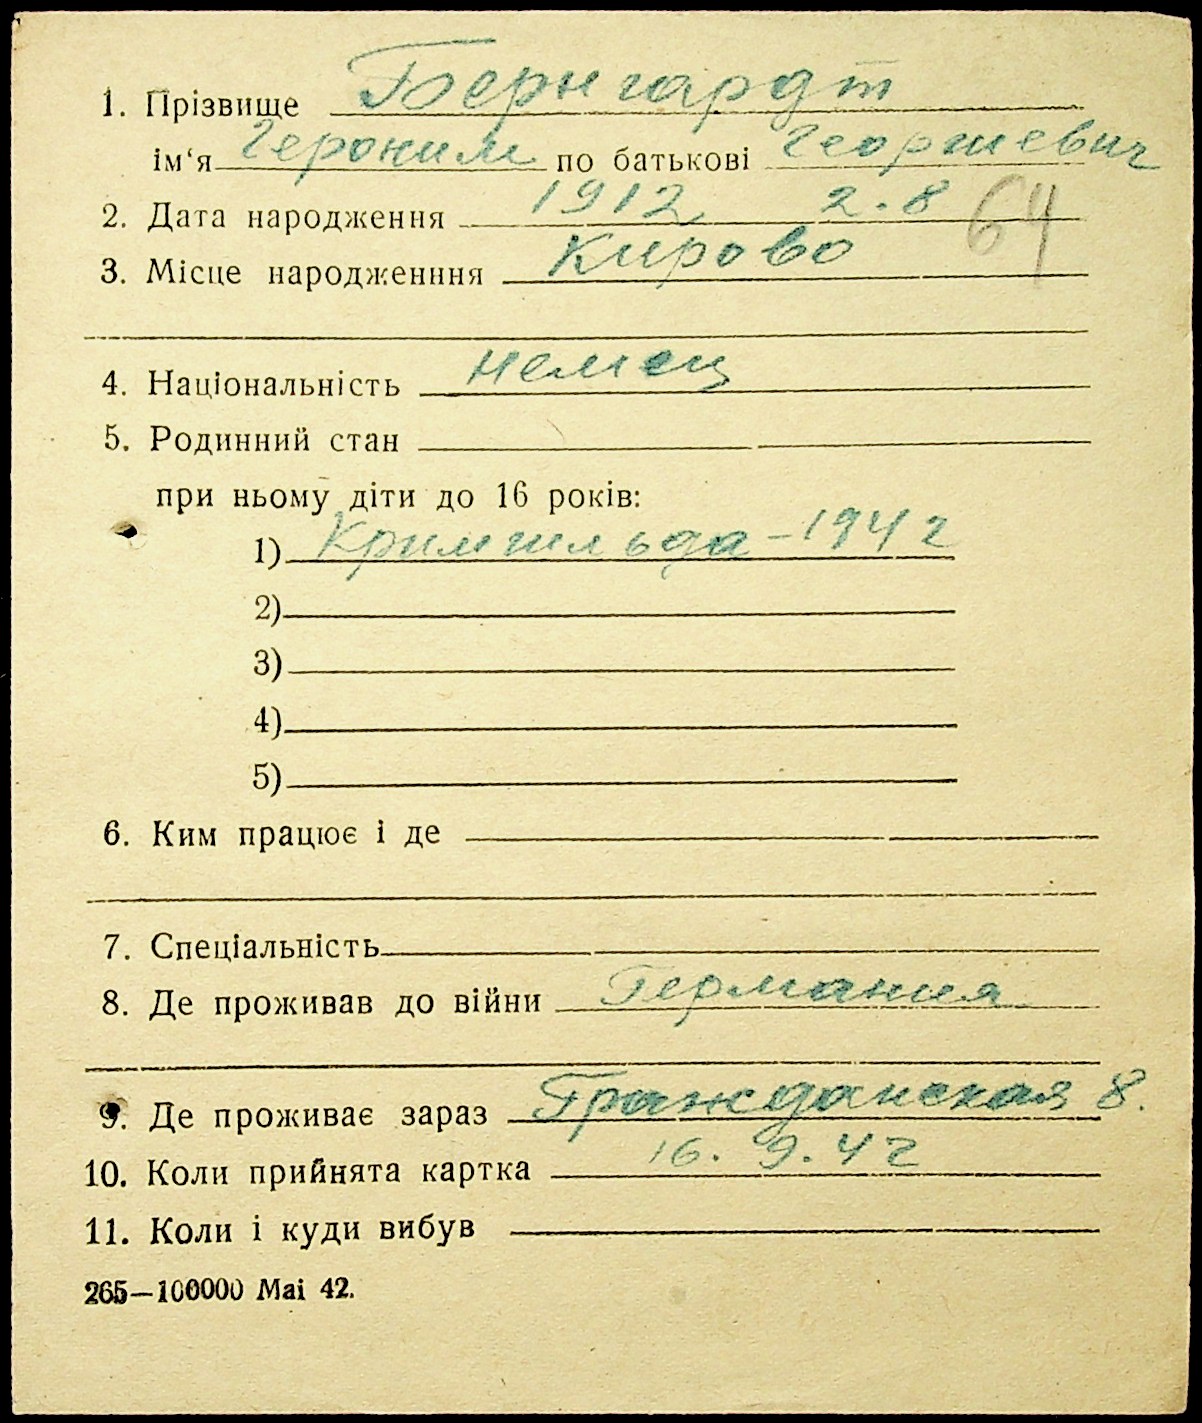 1. Прізвище Бернгардт
ім‘я Героним по батькові Георгиевич
2. Дата народження 1912 2.8 64
3. Місце народженння Кирово
4. Національність немец
5. Родинний стан
при ньому діти до 16 років:
1) Кримгильда – 1942
2)
3)
4)
5)
6. Ким працює і де
7. Спеціальність
8. Де проживав до війни Германия
9. Де проживає зараз Гражданская 8.
10. Коли прийнята картка 16. 9. 42
11. Коли і куди вибув
265—100000 Mai 42.